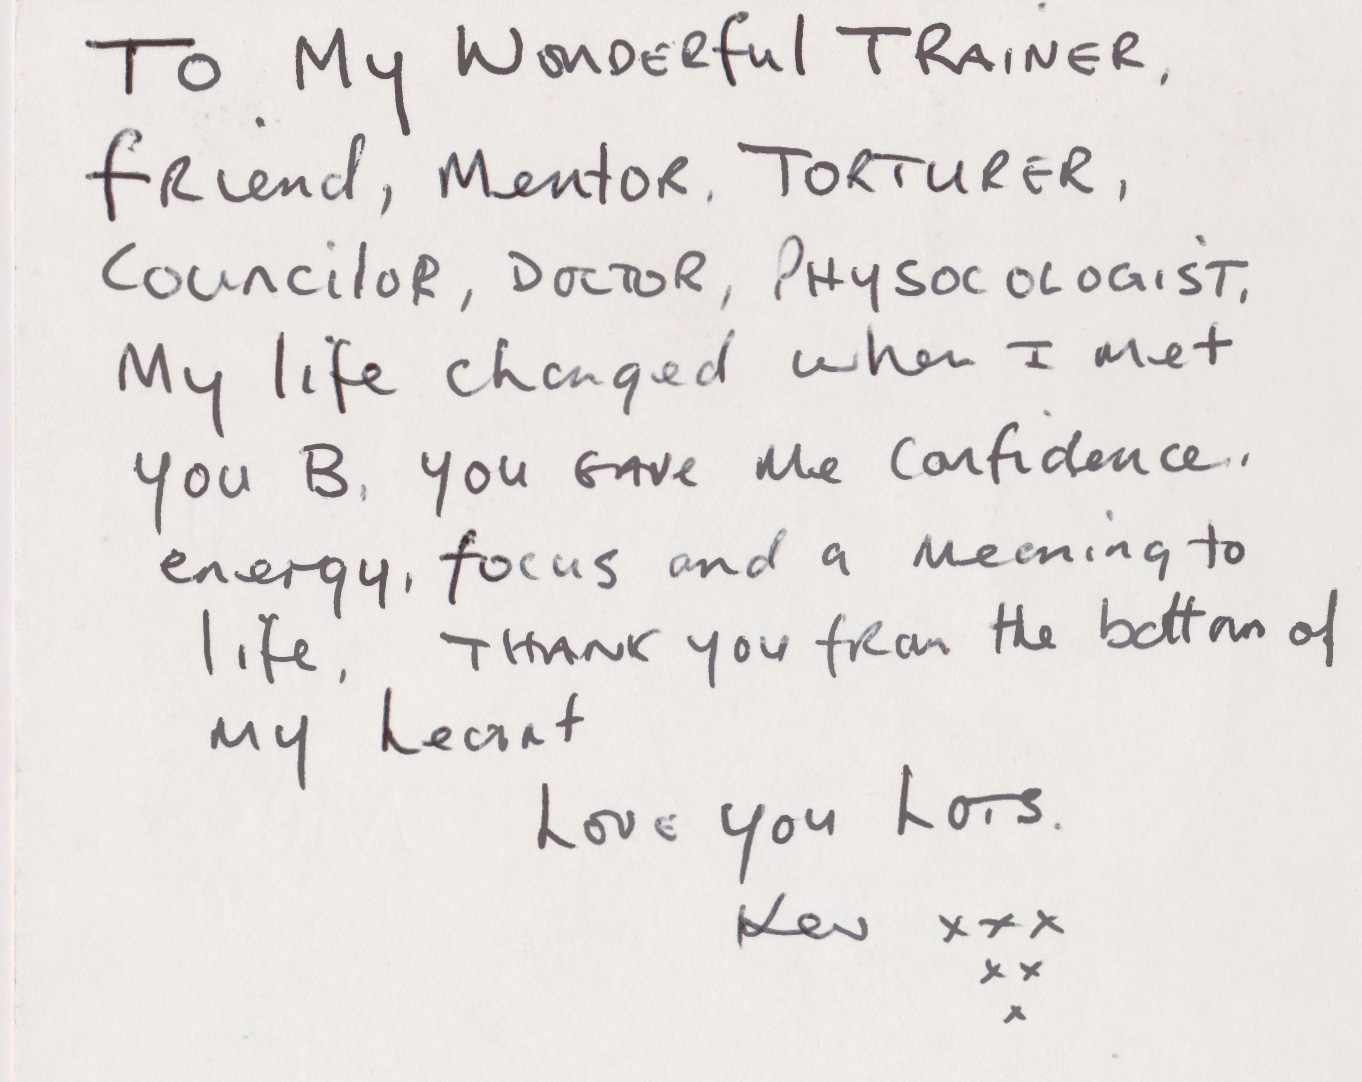 To My Wonderful TRAINER,
friend, Mentor, TORTURER,
Councilor, DOCTOR, PHYSOCOLOGIST,
My life changed when I met
you B. you GAVE me confidence.
energy, focus and a meaning to
life. THANK you from the bottom of
my heart
Love you Lots.
Kev xxx
xx
x